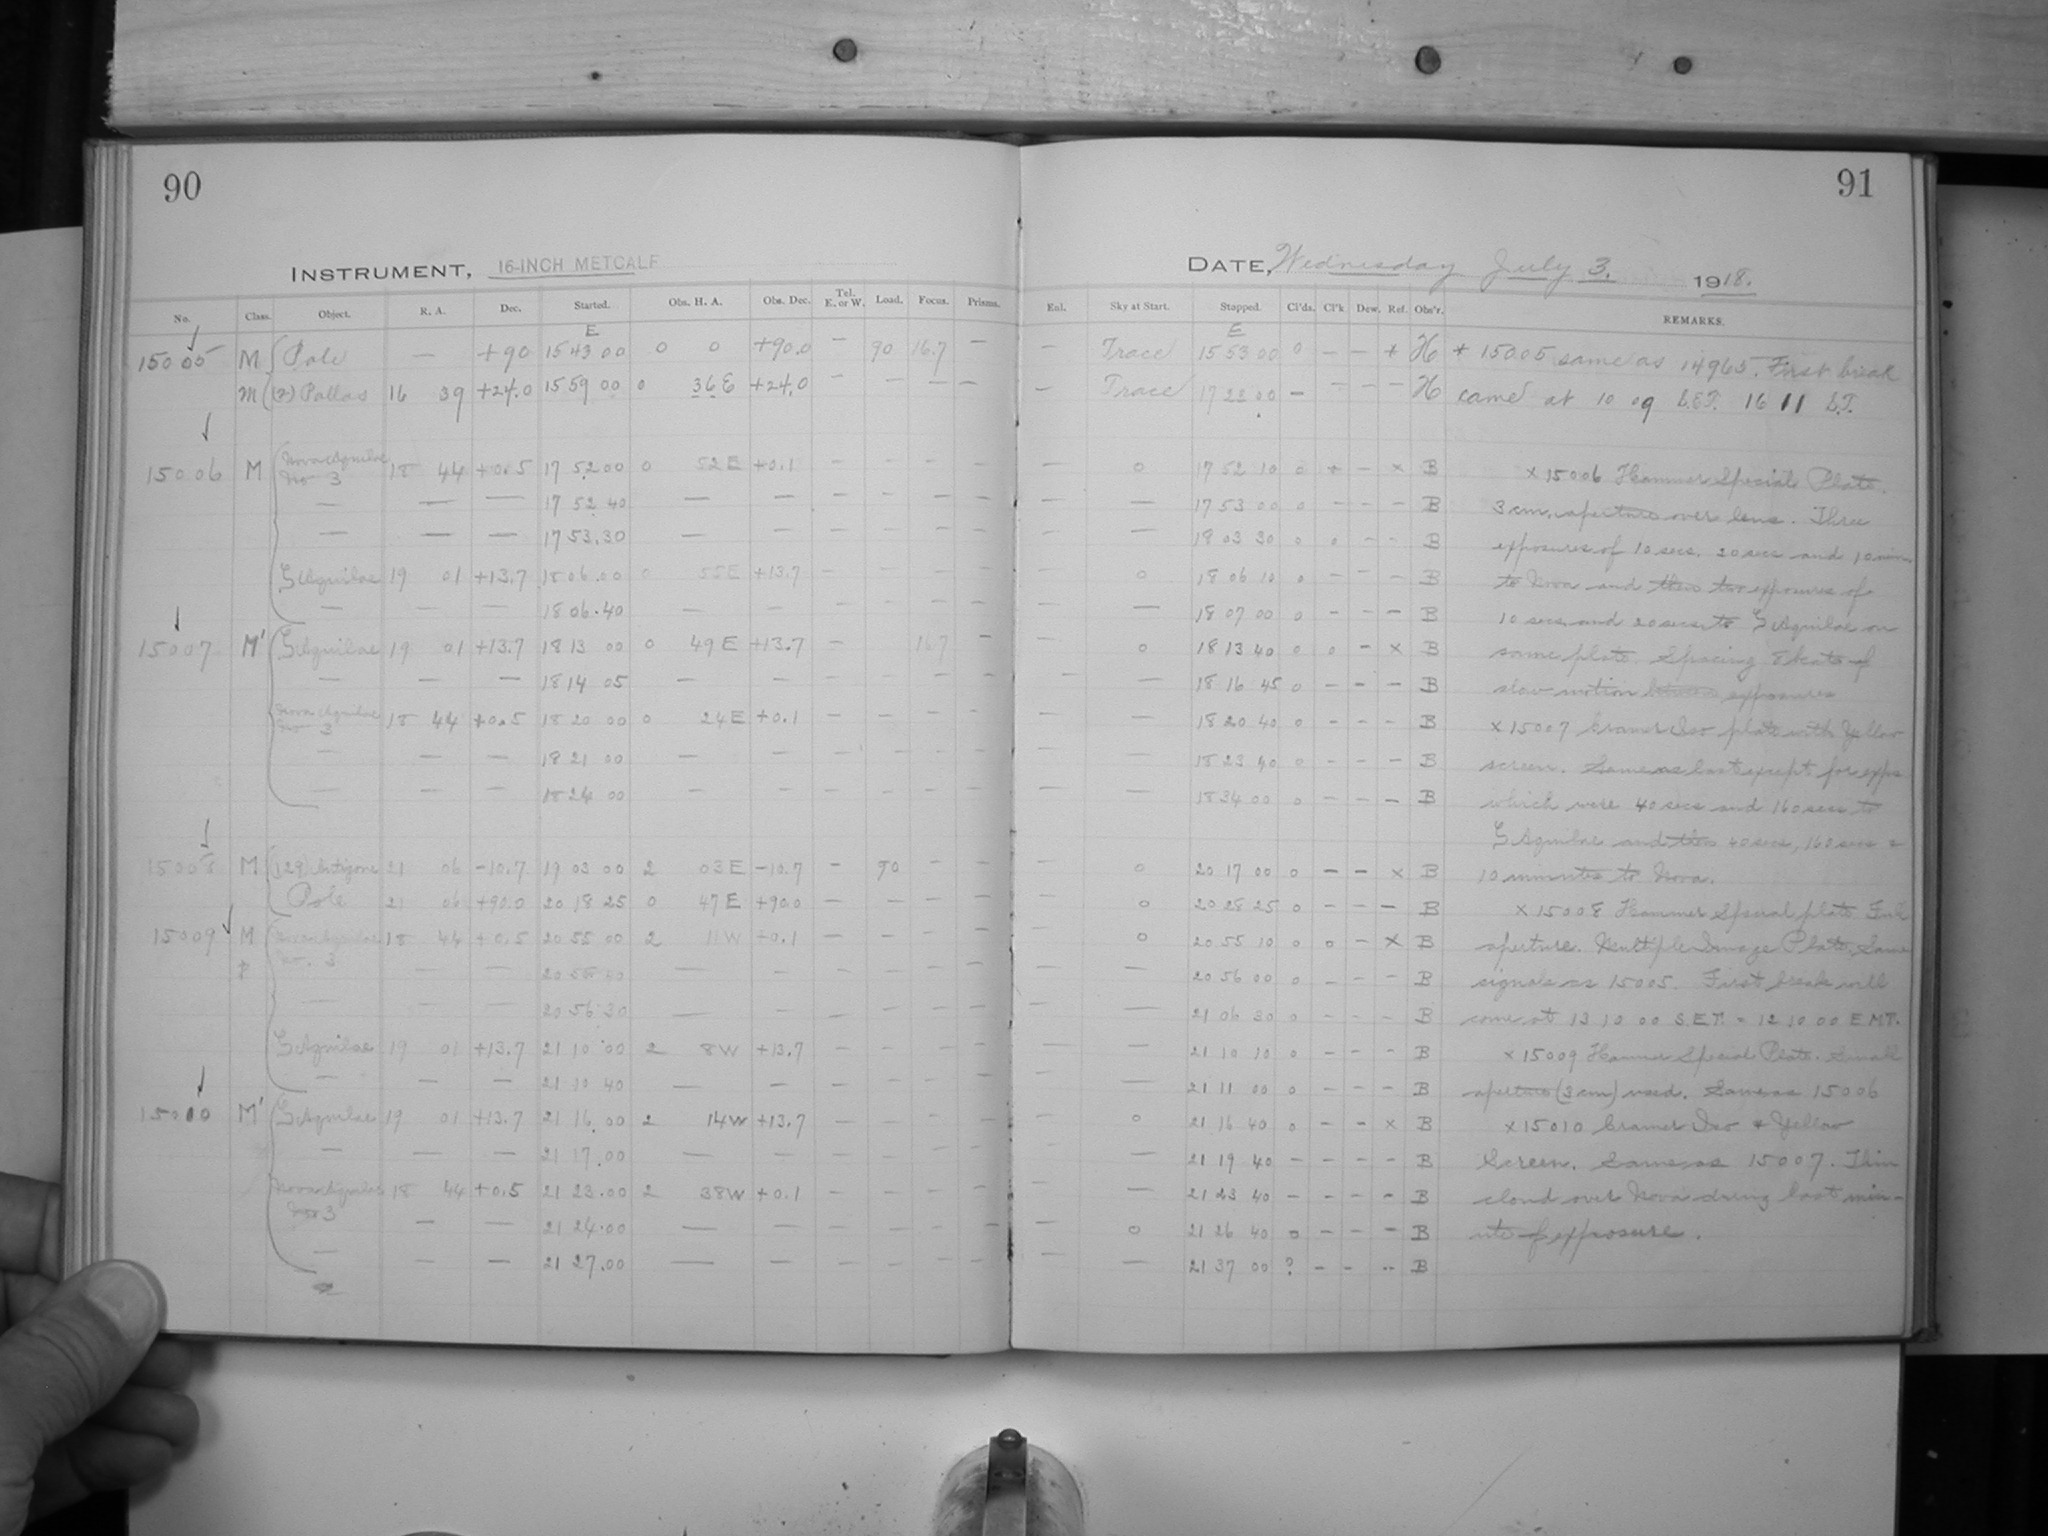 90
91
INSTRUMENT, 16-INCH METCALF
DATE, Wednesday July 3. 1918.
No. Class. Object. R. A. Dec. Started. Obs. H. A. Obs. Dec. Tel. E. or W. Load. Focus. Prisms. Enl. Sky at Start. Stopped. Cl'ds. Cl'k Dew. Ref. Obs'r. REMARKS.
E E
15005 M Pole — +90 15 43 00 0 0 +90.0 — 90 16.7 — — Trace 15 53 00 0 — — + H + 15005 same as 14965. First break
M (2) Pallas 16 39 +24.0 15 59 00 0 36 E +24.0 — — — — — Trace 17 22 00 — — — — H came at 10 09 S.E.T. 16 11 S.T.
15006 M Nova Aquilae No 3 18 44 +0.5 17 52 00 0 52 E +0.1 — — — — — 0 17 52 10 0 + — x B x 15006 Hammer Special Plate.
— — — 17 52 40 — — — — — — — — 17 53 00 0 — — — B 3 cm. aperture over lens. Three
— — — 17 53.30 — — — — — — — — 18 03 30 0 0 — — B exposures of 10 secs. 20 secs and 10 min
ζ Aquilae 19 01 +13.7 18 06.00 0 55 E +13.7 — — — — — 0 18 06 10 0 — — — B to Nova and then two exposures of
— — — 18 06.40 — — — — — — — — 18 07 00 0 — — — B 10 secs and 20 secs to ζ Aquilae on
15007 M' ζ Aquilae 19 01 +13.7 18 13 00 0 49 E +13.7 — 16.7 — — 0 18 13 40 0 0 — x B same plate. Spacing 8 beats of
— — — 18 14 05 — — — — — — — — 18 16 45 0 — — — B slow motion between exposures
Nova Aquilae No 3 18 44 +0.5 18 20 00 0 24 E +0.1 — — — — — — 18 20 40 0 — — — B x 15007 Cramer Iso plate with Yellow
— — — 18 21 00 — — — — — — — — 18 23 40 0 — — — B screen. Same as last except for exps
— — — 18 24 00 — — — — — — — — 18 34 00 0 — — — B which were 40 secs and 160 secs to
ζ Aquilae and then 40 secs, 160 secs &
15008 M (129) Antigone 21 06 -10.7 19 03 00 2 03 E -10.7 — 90 — — — 0 20 17 00 0 — — x B 10 minutes to Nova.
Pole 21 06 +90.0 20 18 25 0 47 E +90.0 — — — — — 0 20 28 25 0 — — — B x 15008 Hammer Special plate. Full
15009 M Nova Aquilae No. 3 18 44 +0.5 20 55 00 2 11 W +0.1 — — — — — 0 20 55 10 0 0 — x B aperture. Multiple Image Plate. Same
— — — 20 55 40 — — — — — — — — 20 56 00 0 — — — B signals as 15005. First break will
— — — 20 56 30 — — — — — — — — 21 06 30 0 — — — B come at 13 10 00 S.E.T. = 12 10 00 E.M.T.
ζ Aquilae 19 01 +13.7 21 10 00 2 8 W +13.7 — — — — — — 21 10 10 0 — — — B x 15009 Hammer Special Plate. Small
— — — 21 10 40 — — — — — — — — 21 11 00 0 — — — B aperture (3 cm) used. Same as 15006
15010 M' ζ Aquilae 19 01 +13.7 21 16.00 2 14 W +13.7 — — — — — 0 21 16 40 0 — — x B x 15010 Cramer Iso & Yellow
— — — 21 17.00 — — — — — — — — 21 19 40 — — — — B Screen. Same as 15007. Thin
Nova Aquilae No 3 18 44 +0.5 21 23.00 2 38 W +0.1 — — — — — — 21 23 40 — — — — B cloud over Nova during last min-
— — 21 24.00 — — — — — — — 0 21 26 40 0 — — — B ute of exposure.
— — — 21 27.00 — — — — — — — — 21 37 00 ? — — — B